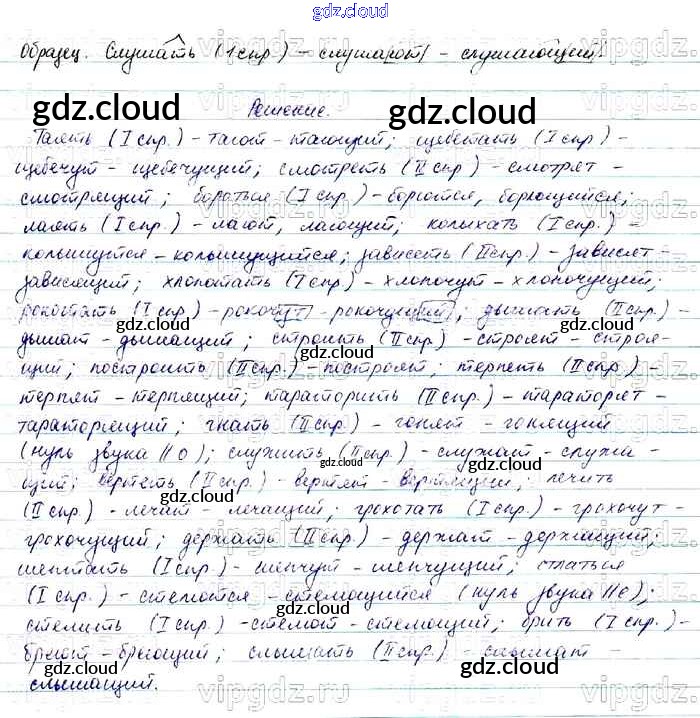 gdz.cloud
Образец. Слушать (1 спр.) – слуша[ют] – слушающий.
gdz.cloud gdz.cloud
Решение.
Таять (I спр.) – тают – тающий; щебетать (I спр.) –
щебечут – щебечущий; смотреть (II спр.) – смотрят –
смотрящий; бороться (I спр.) – борются, борющийся;
лаять (I спр.) – лают, лающий; колыхать (I спр.) –
колышутся – колышущийся; зависеть (II спр.) – зависят
зависящий; хлопотать (I спр) – хлопочут – хлопочущий;
рокотать (I спр.) – рокочут – рокочущий; дышать (II спр.) –
gdz.cloud gdz.cloud
дышат – дышащий; строить (II спр.) – строят – строя-
щий; построить (II спр.) – построят; терпеть (II спр.) –
терпят – терпящий; тараторить (II спр.) – тараторят –
тараторящий; гнать (II спр.) – гонят – гонящий
(нуль звука // о); служить (II спр.) – служат – служа-
gdz.cloud
щий; вертеть (II спр.) – вертят – вертящий; лечить
gdz.cloud gdz.cloud
(II спр.) – лечат – лечащий; грохотать (I спр.) – грохочут –
грохочущий; держать (II спр.) – держат – держащий;
шептать (I спр.) – шепчут – шепчущий; стлаться
(I спр.) – стелются – стелющийся (нуль звука // е);
gdz.cloud gdz.cloud
стелить (I спр.) – стелют – стелющий; брить (I спр.) –
бреют – бреющий; слышать (II спр.) – слышат –
gdz.cloud gdz.cloud
слышащий.